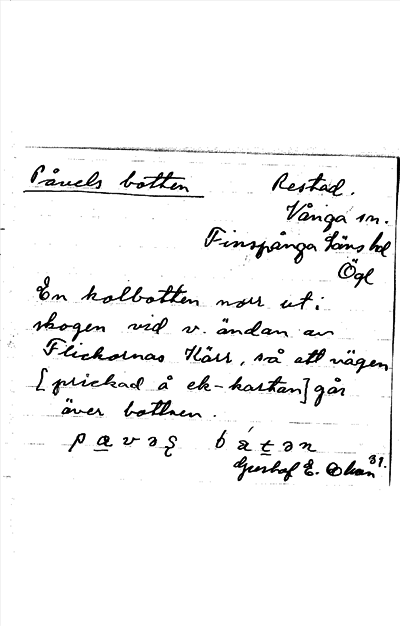 Påvels botten
Restad.
Vånga sn.
Finspånga läns hd
Ögl
En kolbotten norr ut i
skogen vid v. ändan av
Flickornas Kärr, så att vägen
[prickad å ek-kartan] går
över bottnen.
Gustaf E.
31.